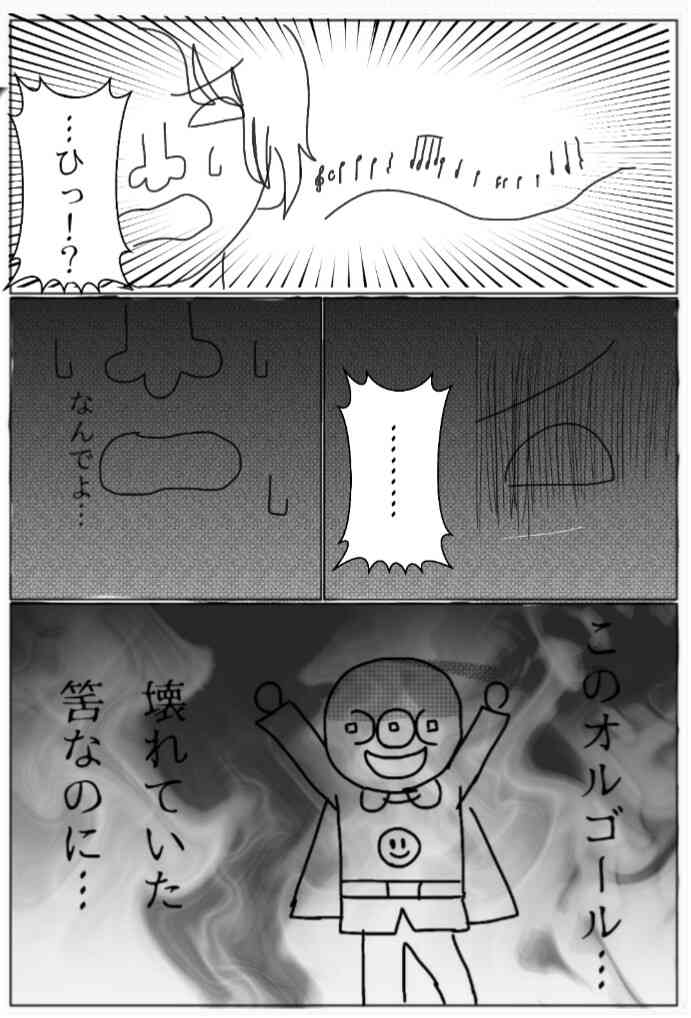 …ひっ！？
………
なんでよ…
このオルゴール…
壊れていた
筈なのに…